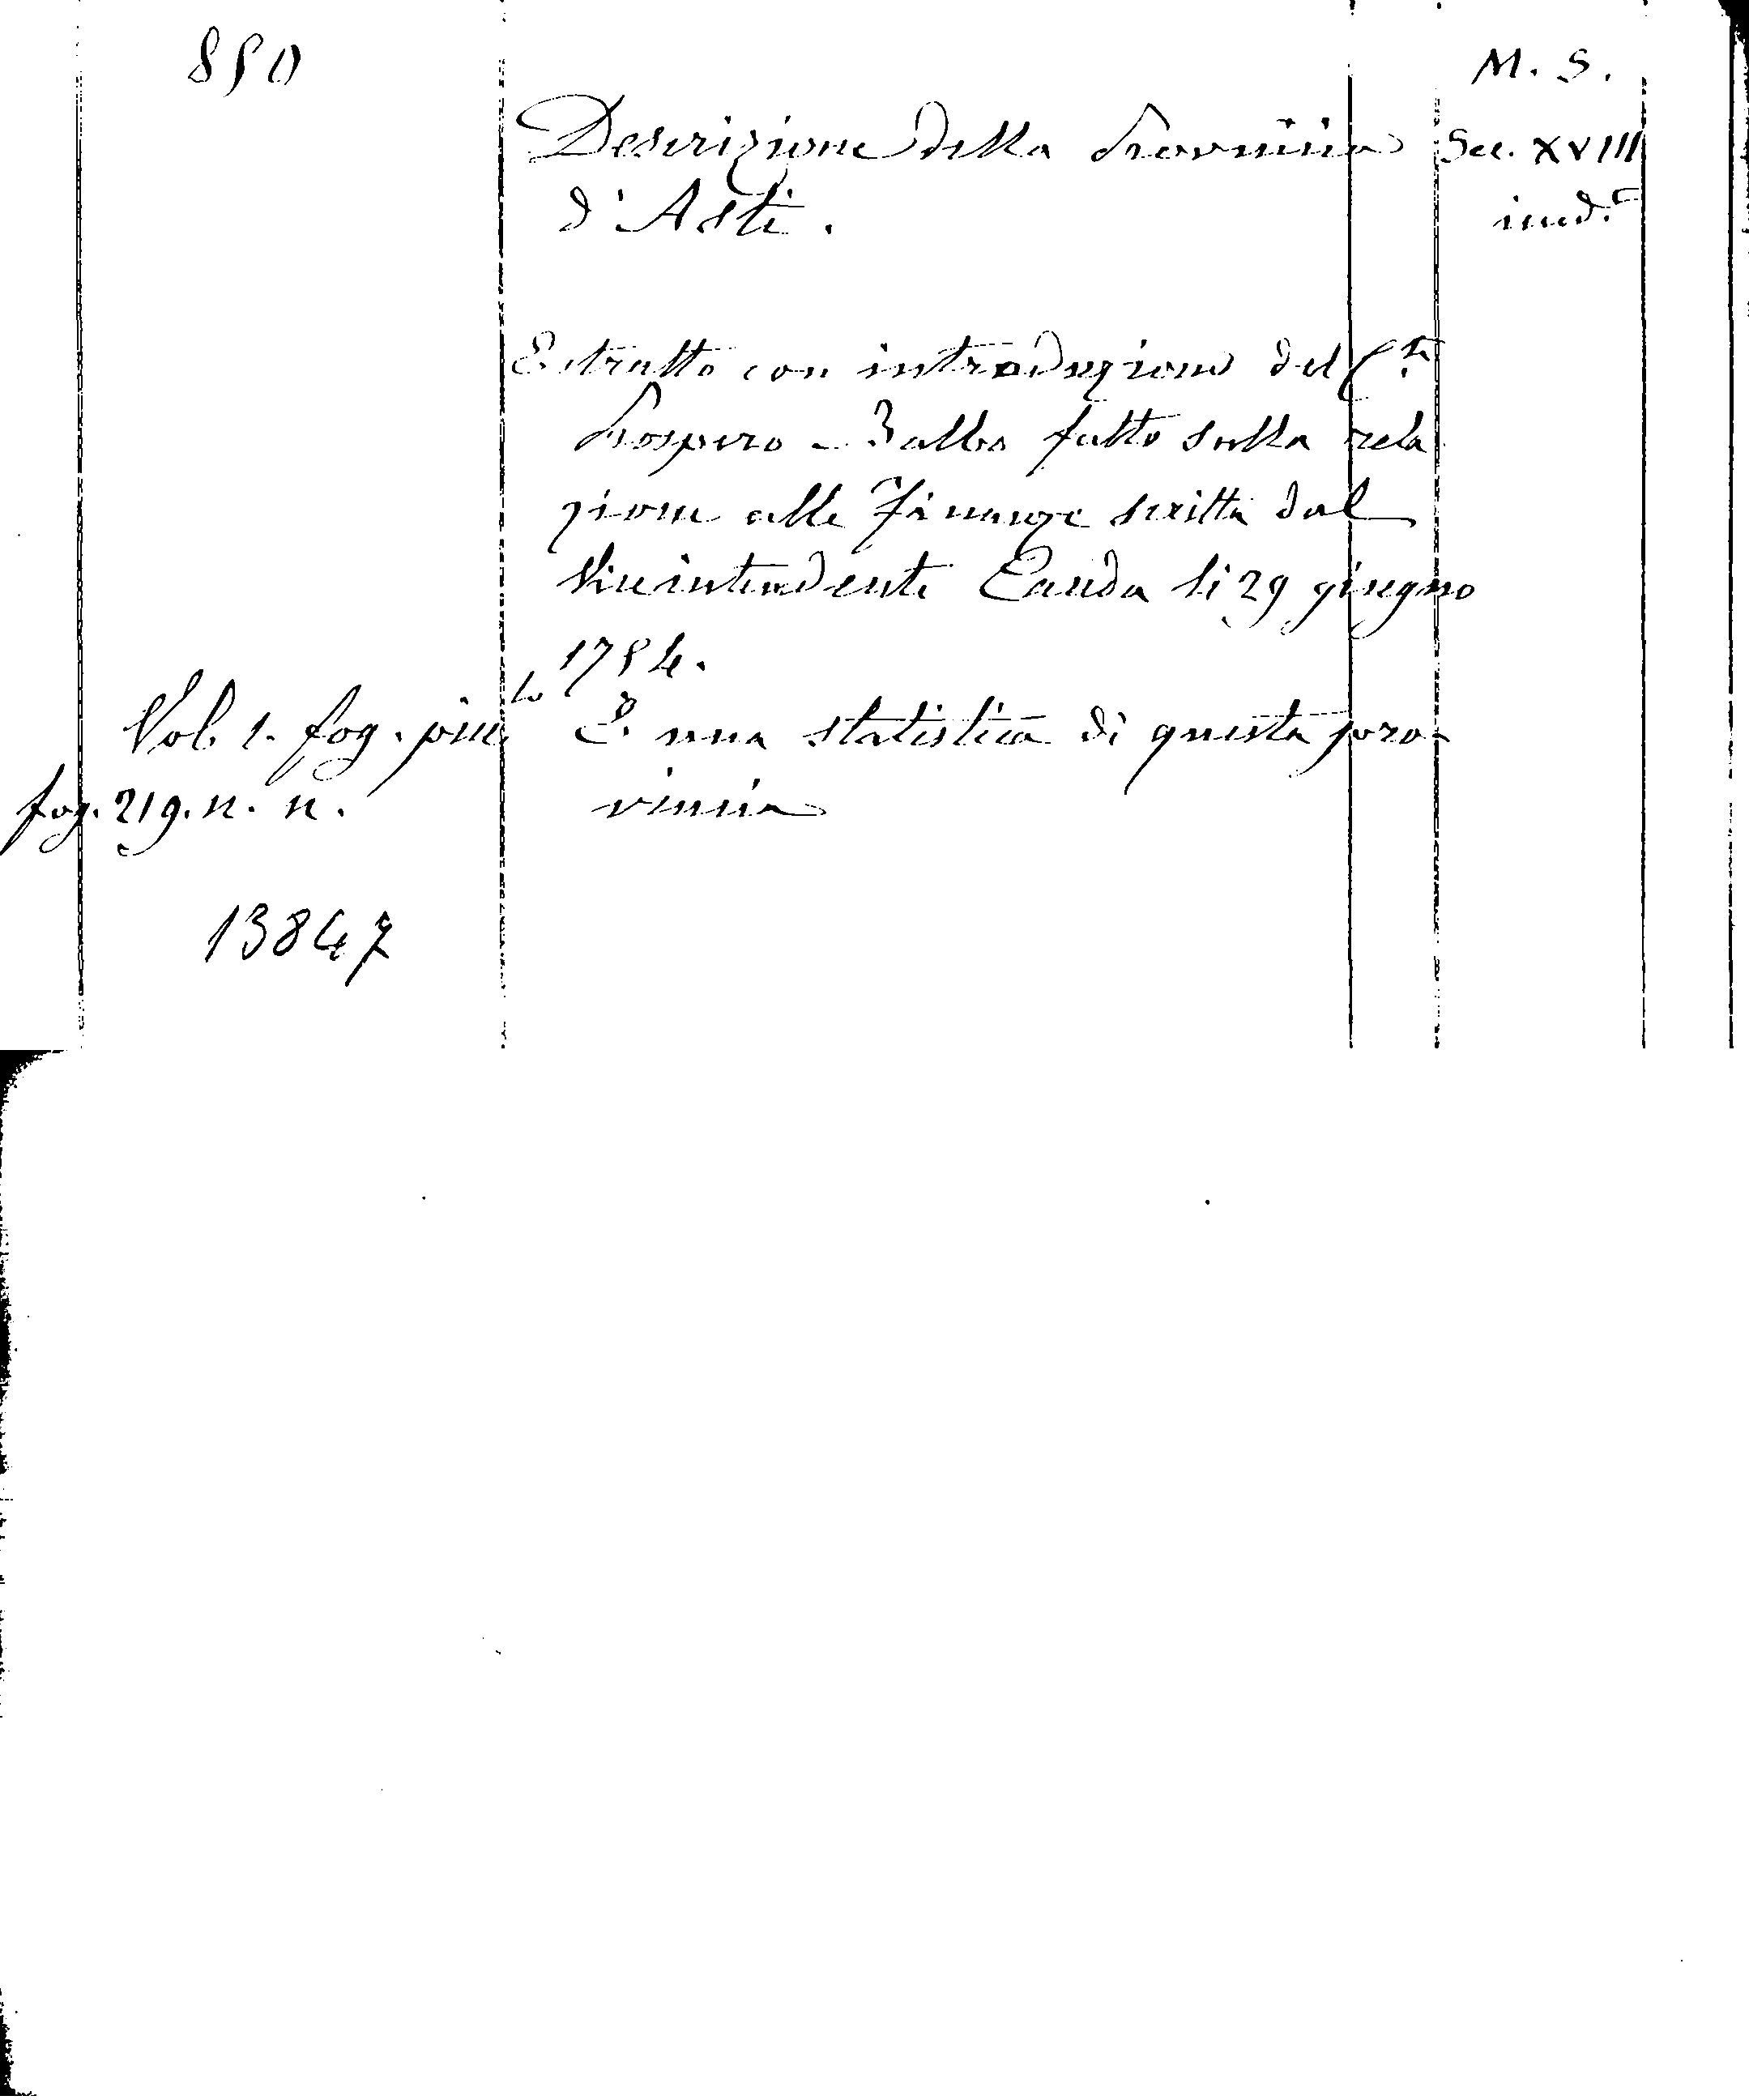 850
M. S.
Descrizione della Provincia
Sec. XVIII
d'Asti.
ined.
Estratto con introduzione del C.te
Prospero - Balbo fatto sulla rela
zione alle Finanze scritta dal
Vice intendente Canda li 29 giugno
1754.
Vol. 1. fog. picc.lo
È una statistica di questa pro-
fog. 219. n. n.
vincia
13847